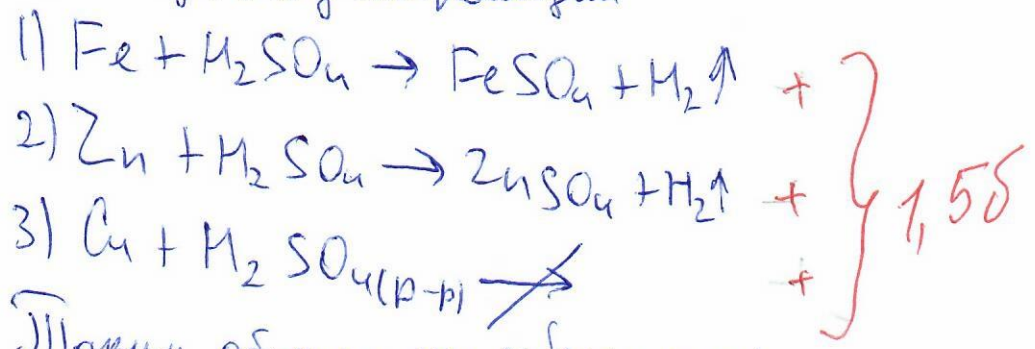 1) Fe + H₂SO₄ → FeSO₄ + H₂↑ +
2) Zn + H₂SO₄ → ZnSO₄ + H₂↑ +
3) Cu + H₂SO₄(р-р) ↛ +
1,5б
Таким